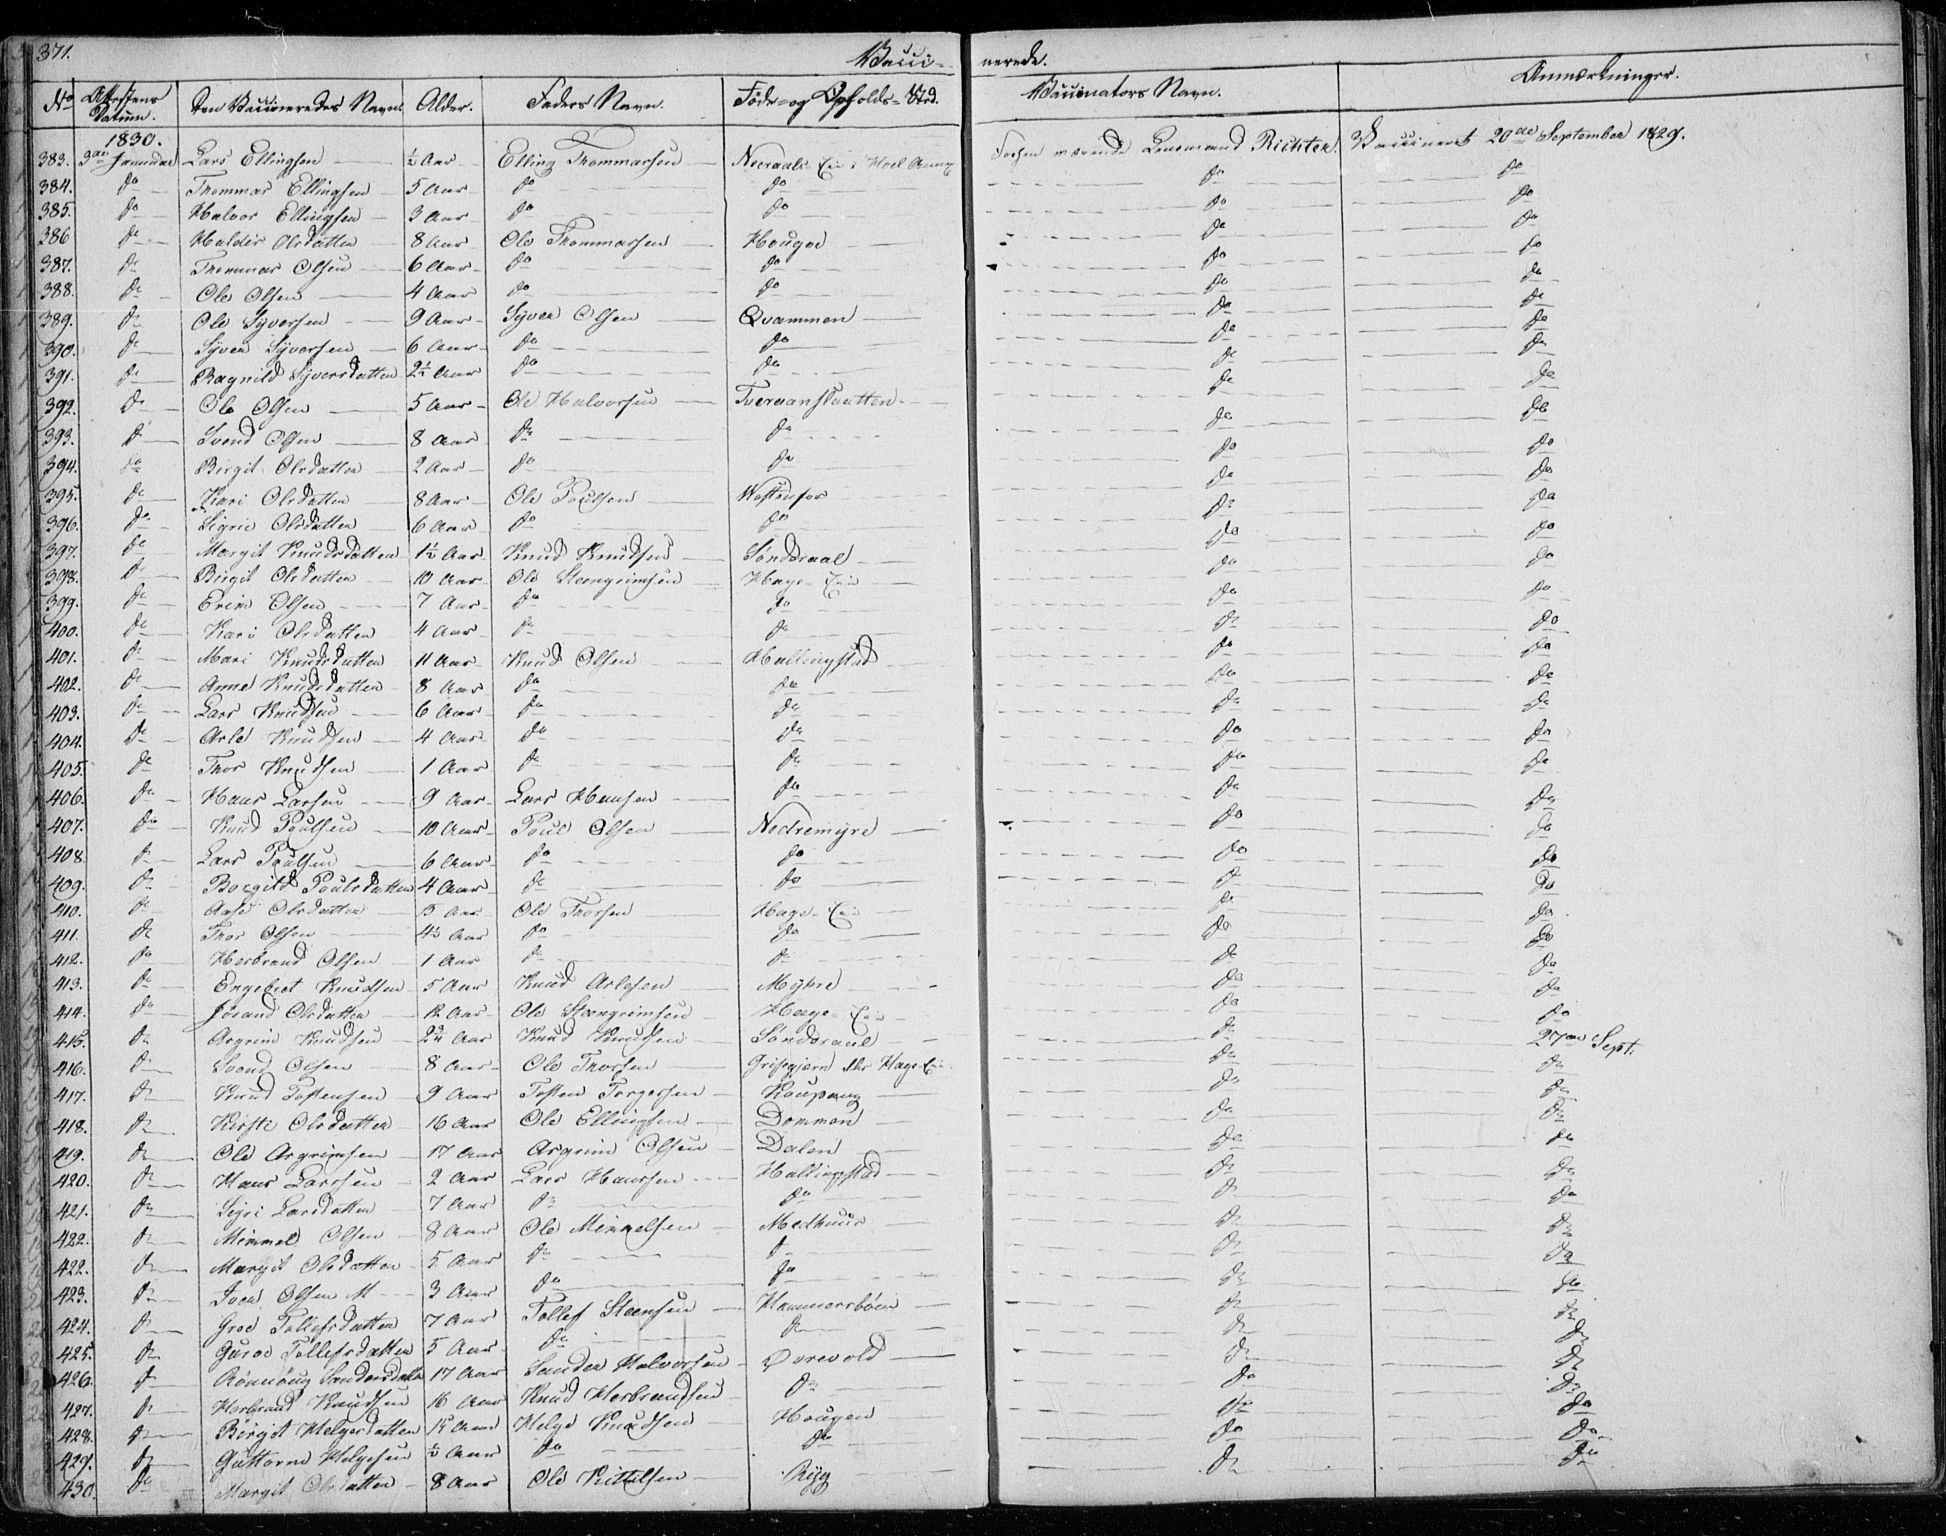 371.
Vacci- nerede.
No Attestens Datum. Den Vaccineredes Navn. Alder. Faders Navn. Føde- og Opholds-Sted. Vaccinators Navn. Anmærkninger.
1830.
383. 3die Lars Ellingsen ½ Aar Elling Thommassen Lensmand Richter. Vaccineret 20de September 1829.
384. do Thommas Ellingsen 5 Aar do do do do
385. do Halvor Ellingsen 3 Aar do do do do
386 do Olsdatter 8 Aar Ole Thommassen Hougen do do
387. do Thommas Olsen 6 Aar do do do do
388. do Ole Olsen 4 Aar do do do do
389. do Ole Syversen 9 Aar Syver Olsen Qvammen do do
390. do Syver Syversen 6 Aar do do do do
391. do Ragnild Syversdatter 2½ Aar do do do do
392. do Ole Olsen 5 Aar Ole Halvorsen do do
393. do Svend Olsen 8 Aar do do do do
394. do Birgit Olsdatter 2 Aar do do do do
395. do Kari Olsdatter 8 Aar Ole Poulsen do do
396. do Sigrie Olsdatter 6 Aar do do do do
397. do Margit Knudsdatter 1½ Aar Knud Knudsen Sønderaal do do
398. do Birgit Olsdatter 10 Aar Ole Steengrimsen Hage-Eie do do
399. do Olsen 7 Aar do do do do
400. do Kari Olsdatter 4 Aar do do do do
401. do Mari Knudsdatter 11 Aar Knud Olsen Hallingstad do do
402. do Anne Knudsdatter 8 Aar do do do do
403. do Lars Knudsen 6 Aar do do do do
404. do Arle Knudsen 4 Aar do do do do
405. do Thor Knudsen 1 Aar do do do do
406. do Hans Larsen 9 Aar Lars Hansen do do do
407. do Knud Poulsen 10 Aar Poul Olsen Nedremyre do do
408 do Lars Poulsen 6 Aar do do do do
409. do Borgild Poulsdatter 4 Aar do do do do
410. do Aase Olsdatter Aar Ole Thorsen Hage-Eie do do
411. do Thor Olsen 4½ Aar do do do do
412. do Herbrand Olsen 1 Aar do do do do
413. do Engebret Knudsen 5 Aar Knud Arlesen Myhre do do
414. do Jørand Olsdatter 12 Aar Ole Steengrimsen Hage-Eie do do
415. do Asgrim Knudsen 2¾ Aar Knud Knudsen Sønderaal do 27de Sept.
416. do Svend Olsen 8 Aar Ole Thorsen Hage-Eie do do
417. do Knud Tostensen 9 Aar Tosten Torgersen Koupang do do
418. do Kirsti Olsdatter 16 Aar Ole Ellingsen Dommen do do
419. do Ole Asgrimsen 17 Aar Asgrim Olsen Dalen do do
420. do Hans Larssen 2 Aar Lars Hanssen Hallingstad do do
421. do Sigri Larsdatter 7 Aar do do do do
422. do Mimmel Olsen 8 Aar Ole Mimmelsen Medhuus do do
422. do Margit Olsdatter 5 Aar do do do do
423. do Iver Olsen M 3 Aar do do do do
424. do Groe Tollefsdatter 7 Aar Tollef Steensen Hammersbøen do do
425. do Guroe Tollefsdatter 5 Aar do do do do
426. do Rønnoug Sandersdatter 17 Aar Sander Halvorsen Ørevold do do
427. do Herbrand Knudsen 16 Aar Knud Herbrandsen do do do
428. do Birgit Helgesdatter Aar Helge Knudsen Hougen do do
429. do Guttorm Helgesen ½ Aar do do do do
430. do Margit Olsdatter 8 Aar Ole Kittelsen Ryg do do